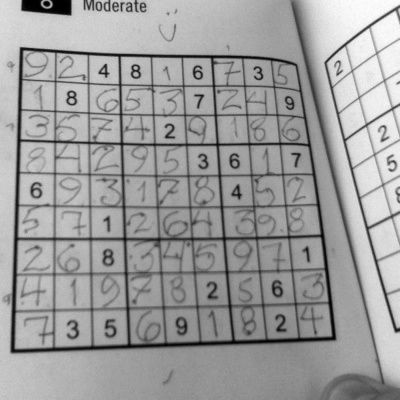 Moderate
9 2 4 8 1 6 7 3 5
1 8 6 5 3 7 2 4 9
3 5 7 4 2 9 1 8 6
8 4 2 9 5 3 6 1 7
6 9 3 1 7 8 4 5 2
5 7 1 2 6 4 3 9 8
2 6 8 3 4 5 9 7 1
4 1 9 7 8 2 5 6 3
7 3 5 6 9 1 8 2 4
2
2
5